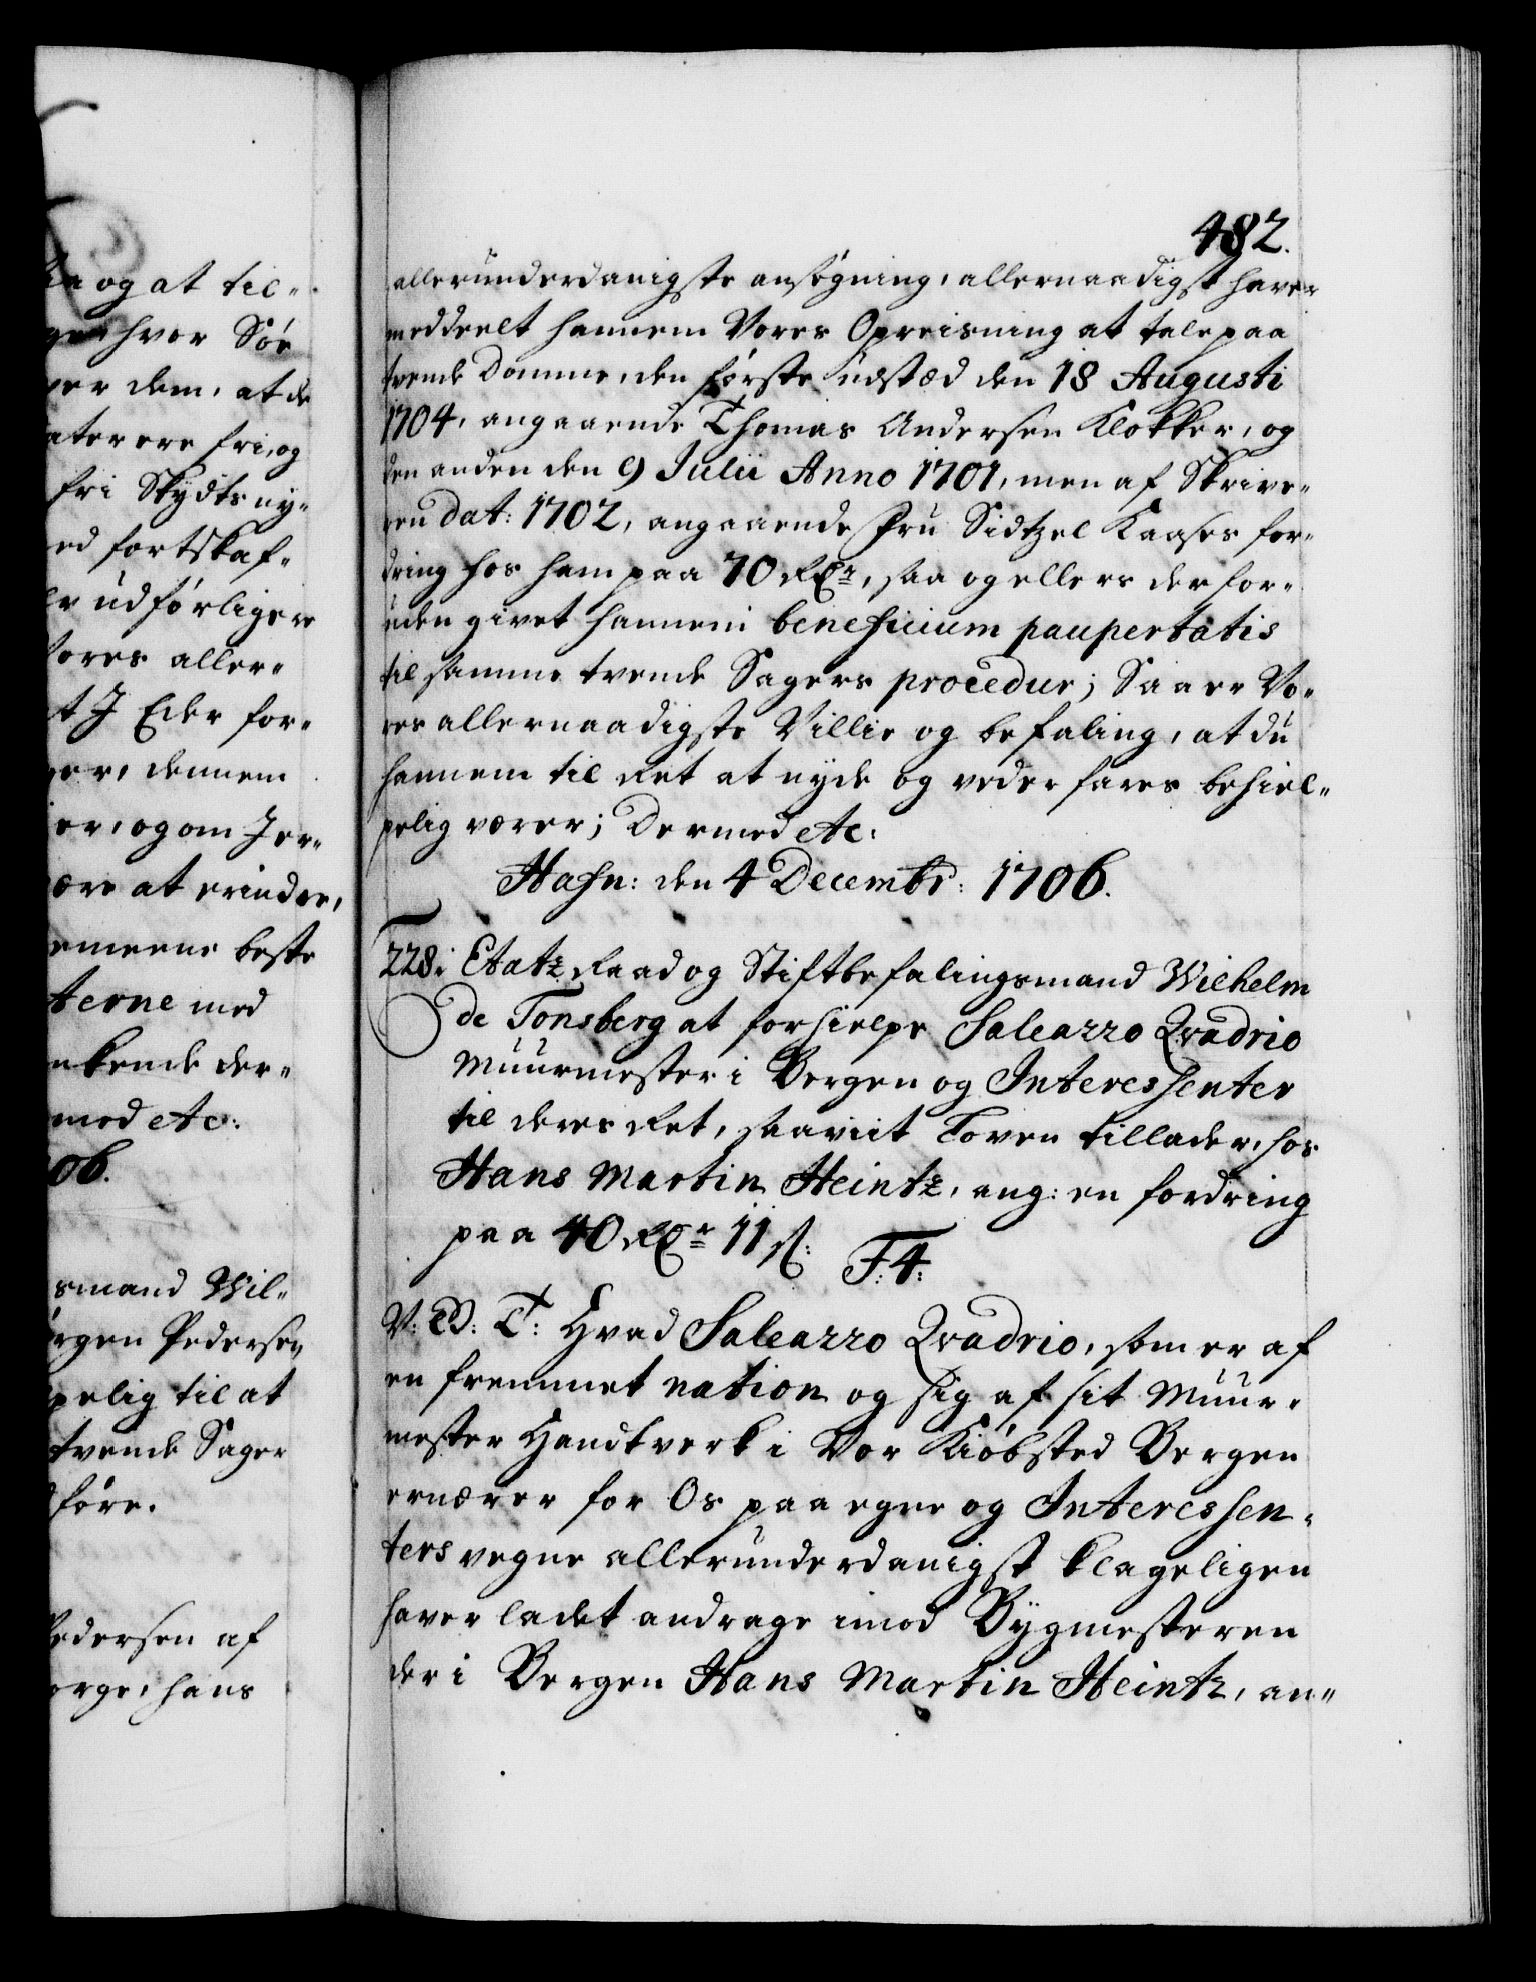 482.
allerunderdanigste ansøgning, allernaadigst haver
meddeelt hannem Vores Opreisning at tale paa
tvende Domme, den første udstæd den 18 Augusti
1704, angaaende Thomas Andersen Klokker, og
den anden den 9 Julii Anno 1701, men af Skrive„
ren dat: 1702, angaaende Fru Sidtzel Kaases for„
dring hos ham paa 70 Rdr, saa og ellers derfor„
uden givet hannem beneficium paupertatis
til samme tvende Sagers procedur; Saa er Vo„
res allernaadigste Villie og befaling, at du
hannem til Ret at nyde og vederfares behiel„
pelig værer; Dermed etc:
Hafn: den 4 Decembr: 1706.
228: Etatz Raad og Stiftbefalingsmand Wilhelm
de Tonsberg at forhielpe Saleazzo Qvadrio
Muurmester i Bergen og Interessenter
til deres Ret, saaviit Loven tillader, hos
Hans Martin Heintz, ang: en fordring
paa 40 Rdr 11 s:
F: 4:
V: G: T: Hvad Saleazzo Qvadrio, som er af
en fremmet nation og sig af sit Muur„
mester Handtverk i Vor Kiøbsted Bergen
ernærer for Os paa egne og Interessen„
ters vegne allerunderdanigst klageligen
haver ladet andrage imod Bygmesteren
der i Bergen Hans Martin Heintz, an„
og at til„
hvor Sør
dem, at de
ere fri, og
fri Skydts ny„
fortskaf„
udførligere
Vores aller„
J Eder for„
dennem
og om Jer„
at erindre,
beste
med
der„
etc:
06.
Wil„
Pedersen
til at
tvende Sager
føre.
Pedersen af
hans